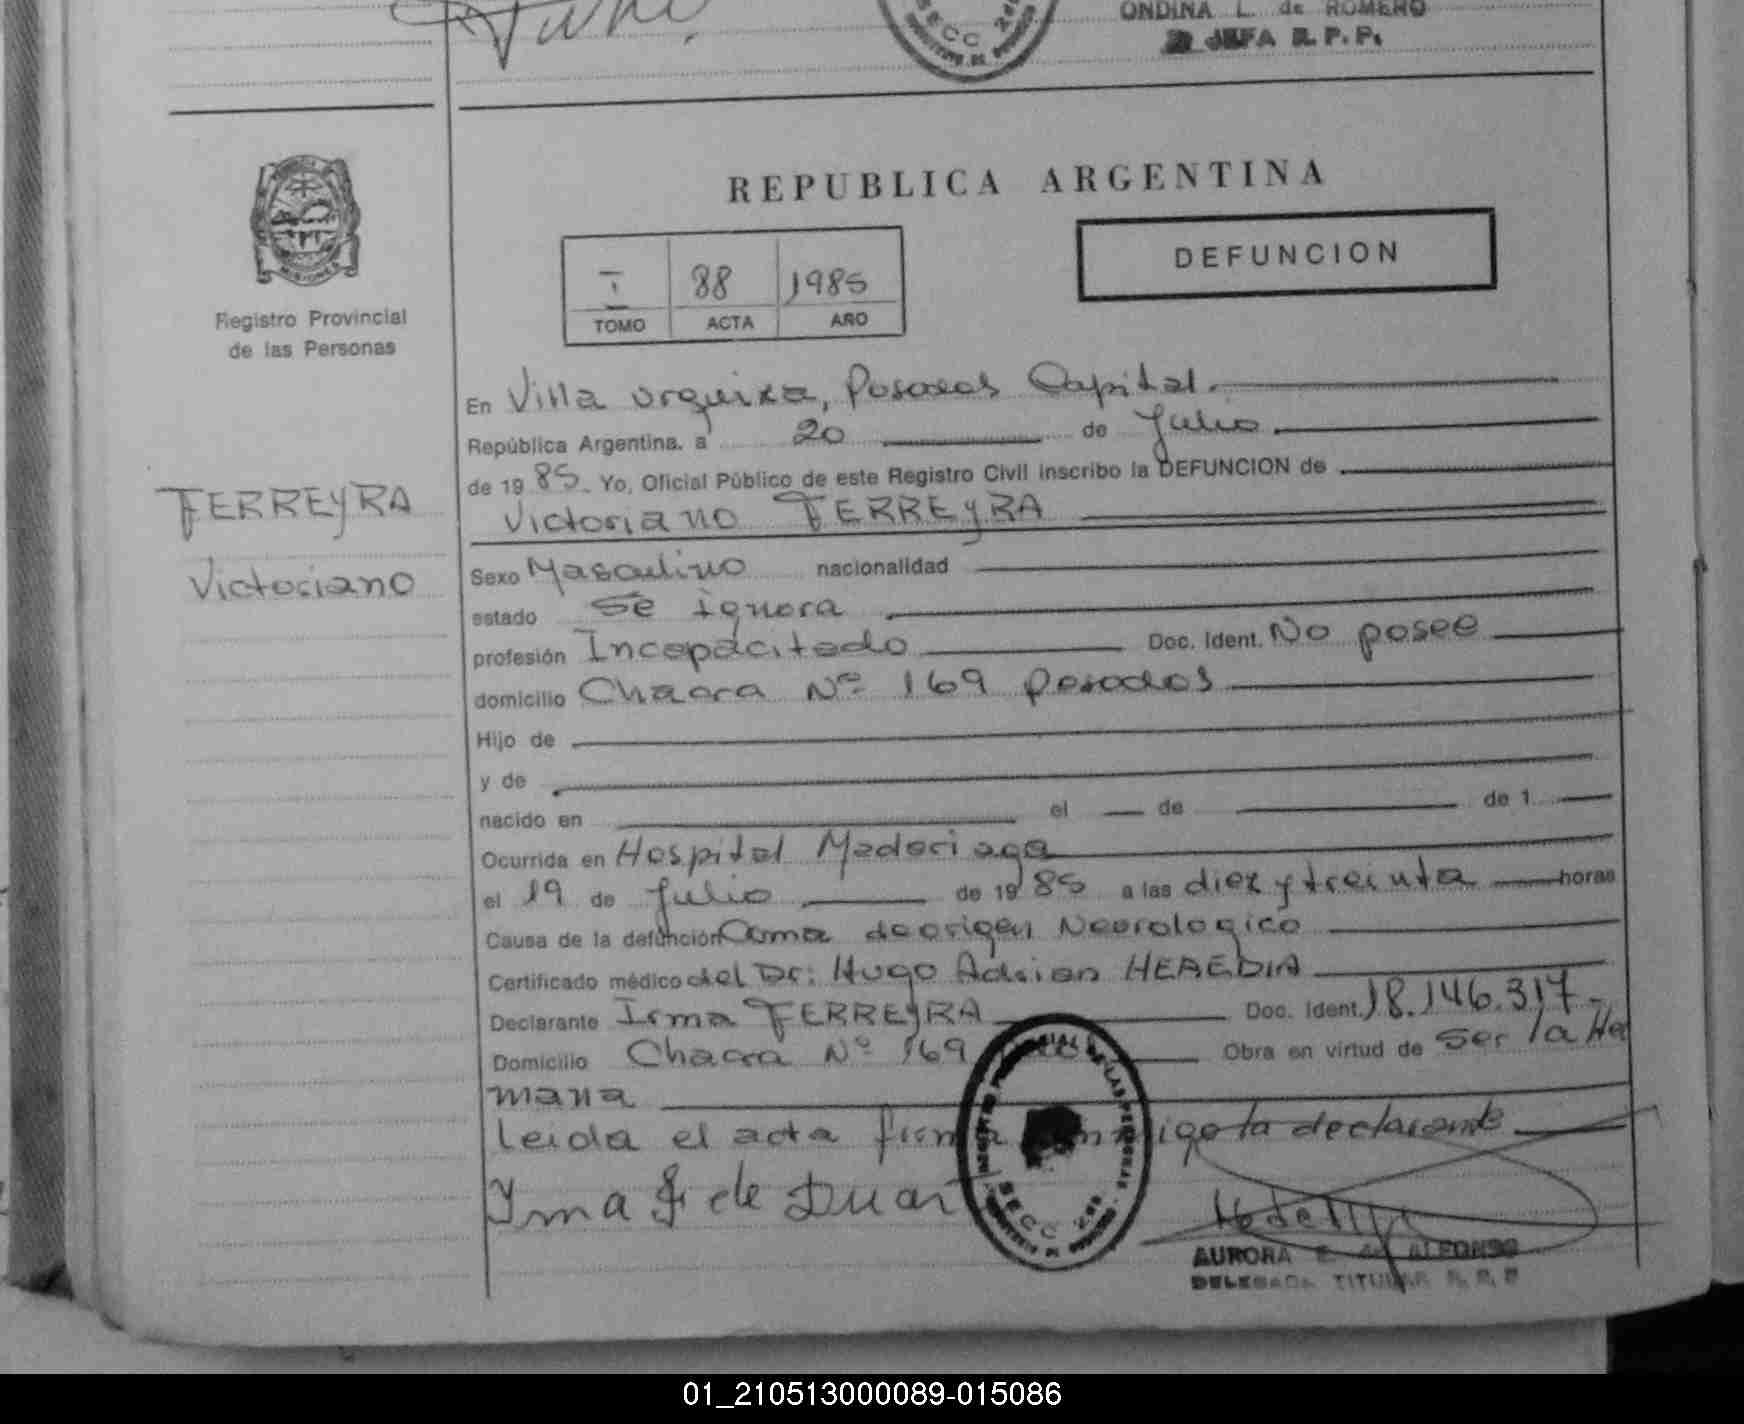 ONDINA L. de ROMERO
JEFA R. P. P.
SECC 2da
REPUBLICA ARGENTINA
MISIONES
Registro Provincial
de las Personas
DEFUNCION
I 88 1985
TOMO ACTA AÑO
En Villa Urquiza, Posadas Capital.
República Argentina. a 20 de Julio.
de 19 85. Yo, Oficial Público de este Registro Civil inscribo la DEFUNCION de
FERREYRA
Victoriano FERREYRA
Victoriano
Sexo Masculino nacionalidad
estado Se ignora
profesión Incapacitado Doc. Ident. No posee
domicilio Chacra Nº 169 Posadas
Hijo de
y de
nacido en el de de 1
Ocurrida en Hospital Madariaga
el 19 de Julio de 19 85 a las diez y treinta horas
Causa de la defunción Coma de origen Neorologico
Certificado médico del Dr: Hugo Adrian HEREDIA
Declarante Irma FERREYRA Doc. Ident. 18.146.317.-
Domicilio Chacra Nº 169 Obra en virtud de Ser la He
mana
Leida el acta firma conmigo la declarante
Irma F. de Duart
SECC 2da
AURORA E. A. ALFONSO
DELEGADA TITULAR R. P. P
01_210513000089-015086